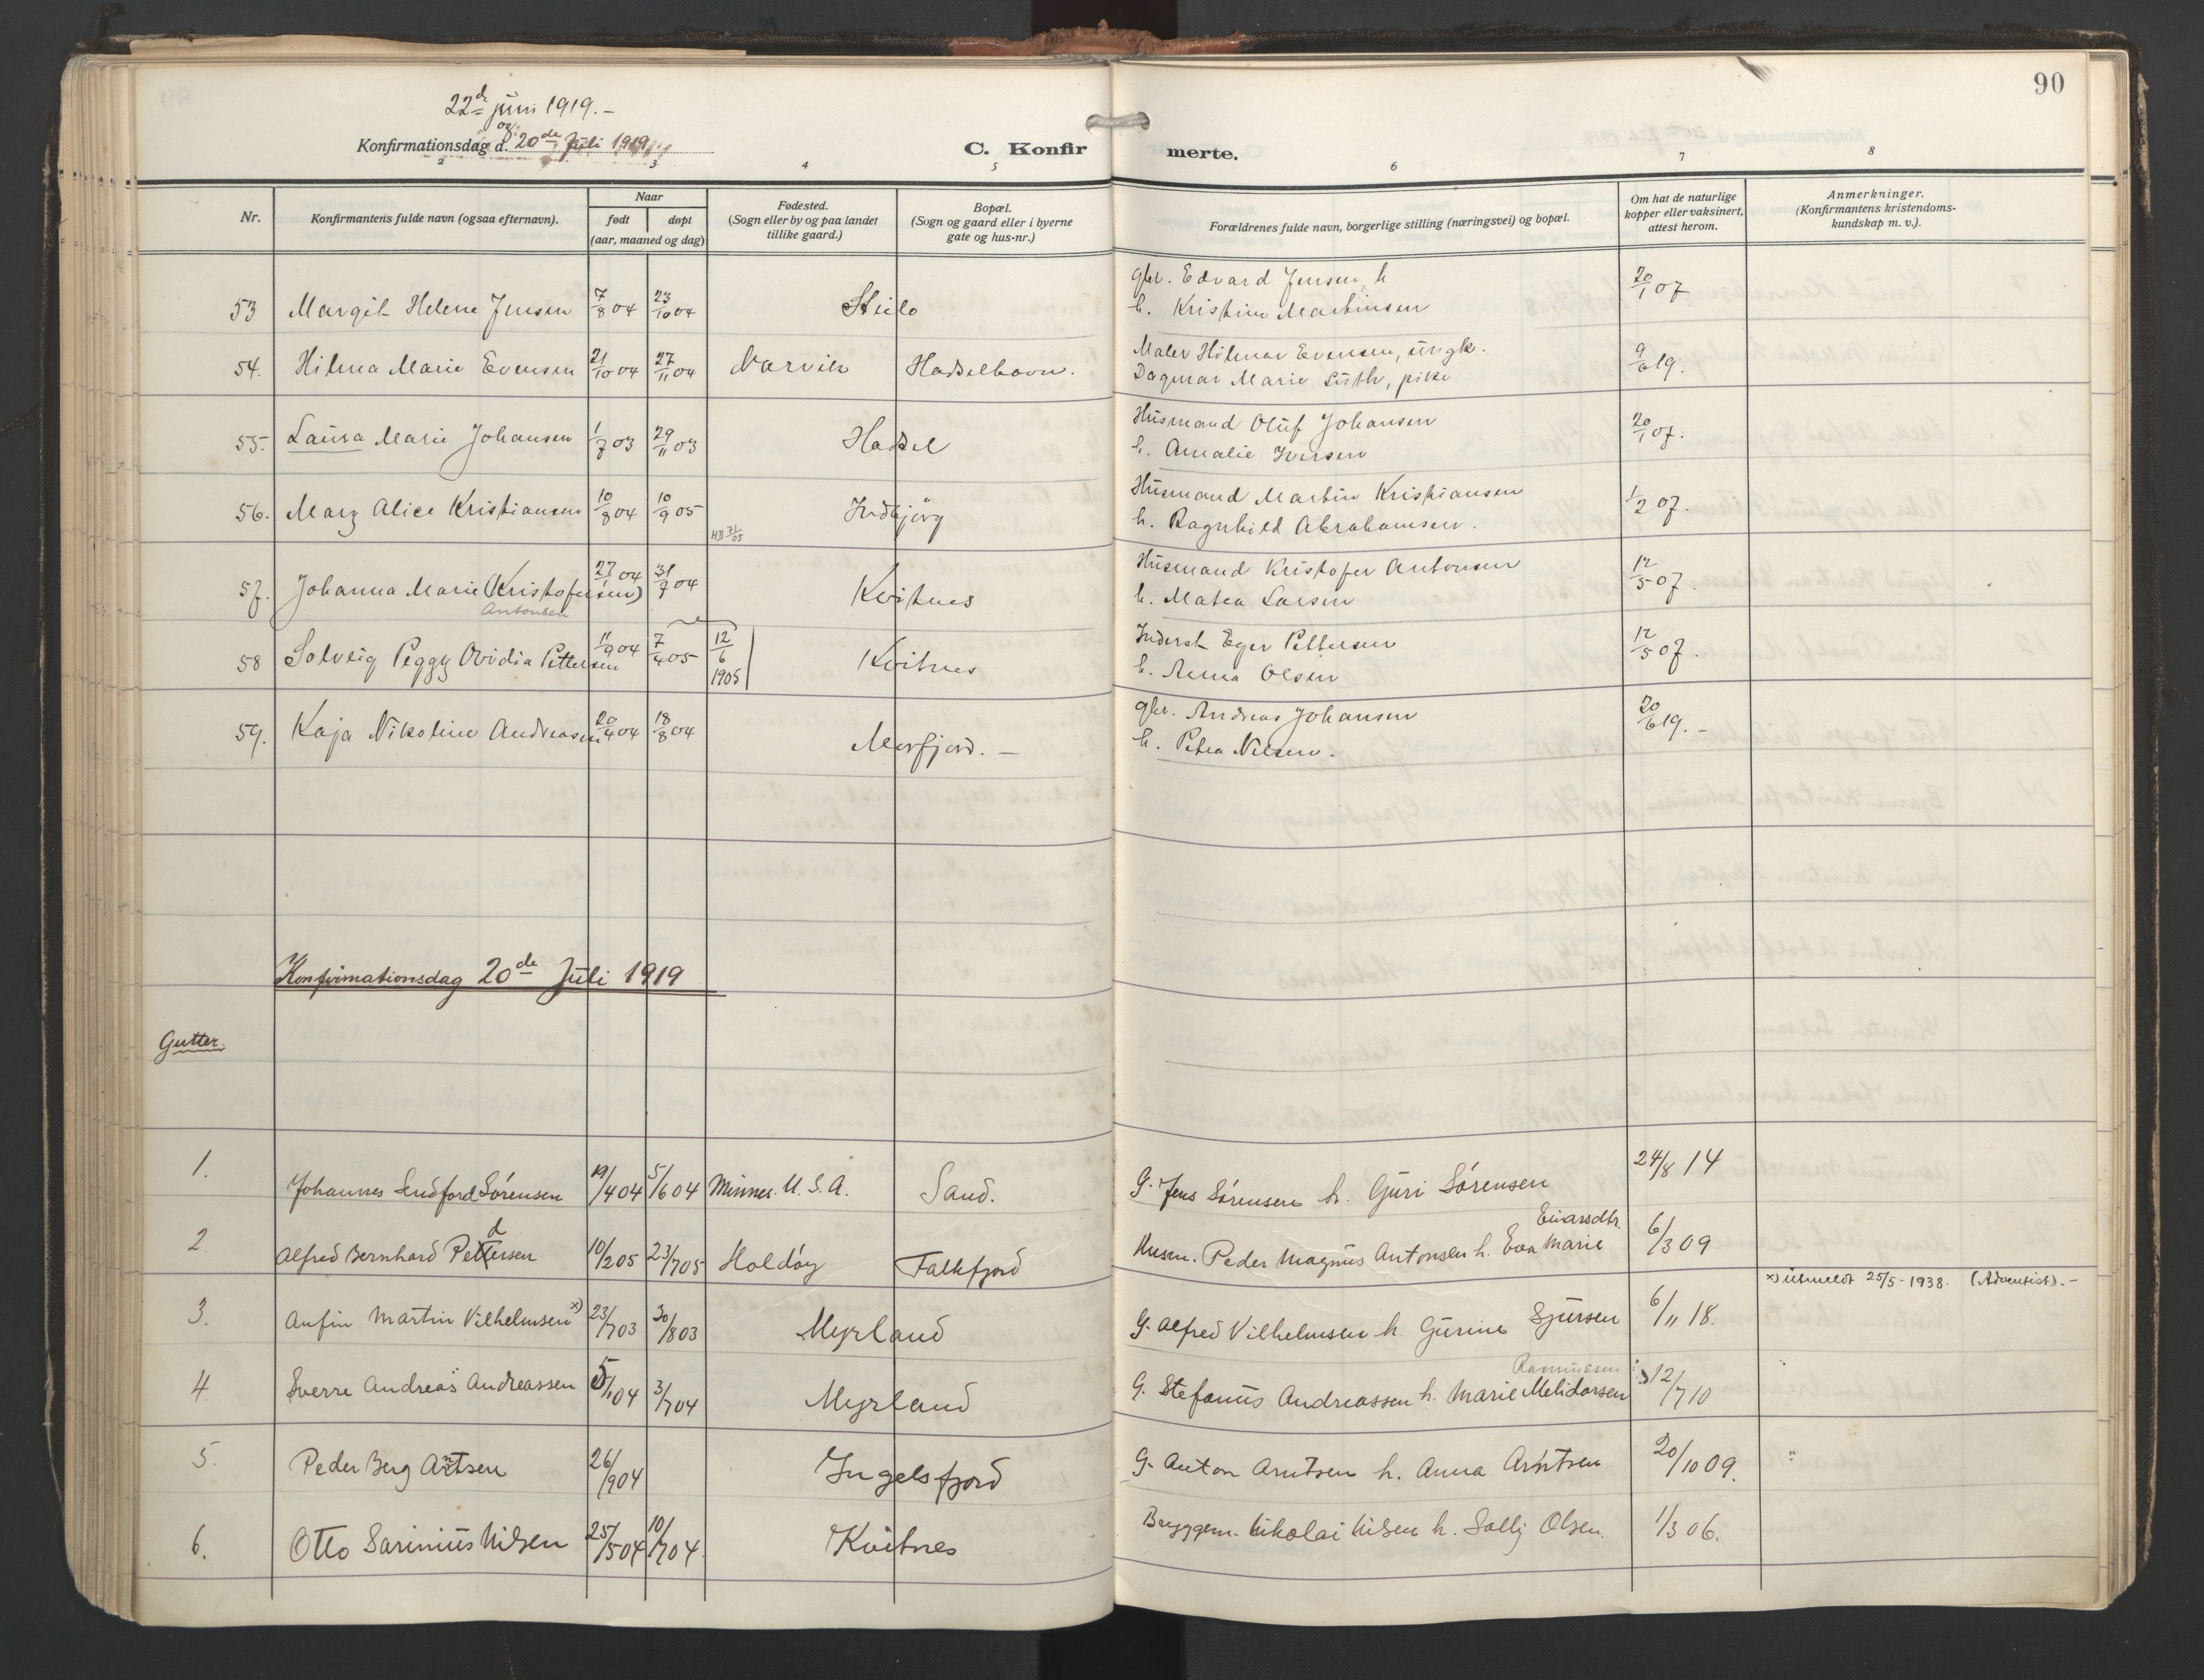 90
22de juni 1919.-
og
Konfirmationsdag d. 20de Juli 1919
C. Konfirmerte.
2 3 4 5 6 7 8
Nr. Konfirmantens fulde navn (ogsaa efternavn). Naar født døpt (aar, maaned og dag) Fødested. (Sogn eller by og paa landet tillike gaard.) Bopæl. (Sogn og gaard eller i byerne gate og hus-nr.) Forældrenes fulde navn, borgerlige stilling (næringsvei) og bopæl. Om hat de naturlige kopper eller vaksinert, attest herom. Anmerkninger. (Konfirmantens kristendoms-kundskap m. v.).
53 Margit Helene Jensen 7/8 04 23/10 04 Stilo gbr. Edvard Jensen, h 20/1 07
h. Kristine Martinsen
54. Hilma Marie Evensen 21/10 04 27/11 04 Narvik Hadselhavn. Maler Hilmar Evensen, ungk. 9/6 19.
Dagmar Marie Luth, pike
55. Laura Marie Johansen 1/7 03 29/11 03 Hadsel Husmand Oluf Johansen 20/1 07.
h. Amalie Iversen
56. Mary Alice Kristiansen 10/8 04 10/9 05 Indbjörg Husmand Martin Kristiansen 1/2 07.
h. Ragnhild Abrahamsen.
57. Johanna Marie (Kristofersen) 27/1 04 31/7 04 Kvitnes Husmand Kristofer Antonsen 12/5 07.
Antonsen
h. Matea Larsen
58 Solveig Peggy Ovidia Pettersen 11/9 04 7/4 05 12/6 1905 Kvitnes Inderst Eger Pettersen 12/5 07.
h. Anna Olsen
59. Kaja Nikoline Andreasen 20/4 04 18/8 04 Morfjord. - gbr. Andreas Johansen 20/6 19.-
h. Petra Nilsen.
Konfirmationsdag 20de Juli 1919
Gutter.
1. Johannes Sendford Sörensen 19/4 04 5/6 04 Minnes. U. S. A. Sand. G. Jens Sörensen h. Guri Sörensen 24/8 14
2. Alfred Bernhard Pettersen 10/2 05 23/7 05 Holdöy Falkfjord Husm. Peder Magnus Antonsen h. Eva Marie Einarsdtr. 6/3 09
3. Anfin Martin Vilhelmsen x) 23/7 03 30/8 03 Myrland G. Alfred Vilhelmsen h. Gurine Sjursen 6/11 18. x) utmeldt 25/5-1938. (Adventist).-
4. Sverre Andreas Andreassen 5/1 04 3/7 04 Myrland G. Stefanus Andreassen h. Marie Melidorsen 12/7 10
Rasmussen
5. Peder Berg Arntsen 26/9 04 Ingelsfjord G. Anton Arntsen h. Anna Arntsen 20/10 09.
6. Otto Sarinius Nilsen 25/5 04 10/7 04 Kvitnes Bryggem. Nikolai Nilsen h. Solly Olsen. 1/3 06.